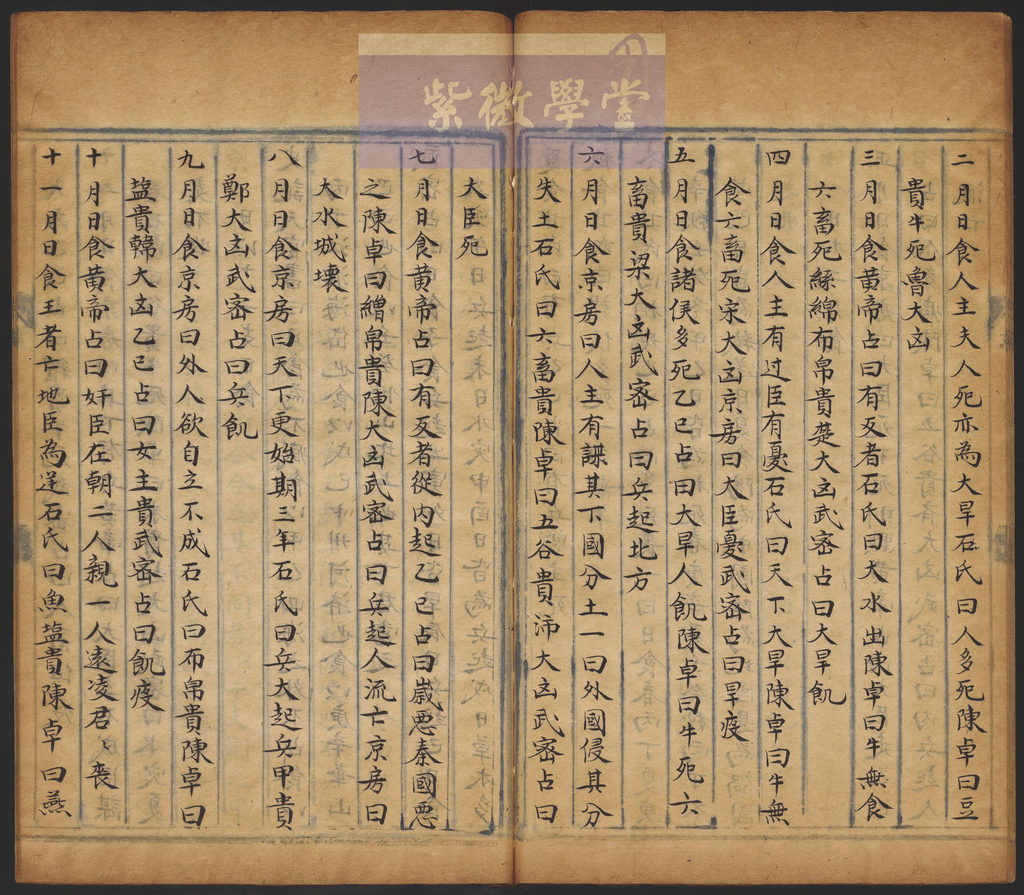 紫微學堂
二月日食人主夫人死亦為大旱石氏曰人多死陳卓曰豆
貴牛死魯大凶
三月日食黄帝占曰有反者石氏曰大水出陳卓曰牛無食
六畜死絲綿布帛貴楚大凶武宻占曰大旱飢
四月日食人主有过臣有憂石氏曰天下大旱陳卓曰牛無
食六畜死宋大凶京房曰大臣憂武宻占曰旱疫
五月日食諸侯多死乙巳占曰大旱人飢陳卓曰牛死六
畜貴梁大凶武宻占曰兵起北方
六月日食京房曰人主有謀其下國分土一曰外國侵其分
失土石氏曰六畜貴陳卓曰五谷貴沛大凶武宻占曰
大臣死
七月日食黄帝占曰有反者從内起乙巳占曰嵗悪秦國悪
之陳卓曰繒帛貴陳大凶武宻占曰兵起人流亡京房曰
大水城壊
八月日食京房曰天下更始期三年石氏曰兵大起兵甲貴
鄭大凶武宻占曰兵飢
九月日食京房曰外人欲自立不成石氏曰布帛貴陳卓曰
塩貴韓大凶乙巳占曰女主貴武宻占曰飢疫
十月日食黄帝占曰奸臣在朝二人親一人遠凌君〻丧
十一月日食王者亡地臣為逆石氏曰魚塩貴陳卓曰燕